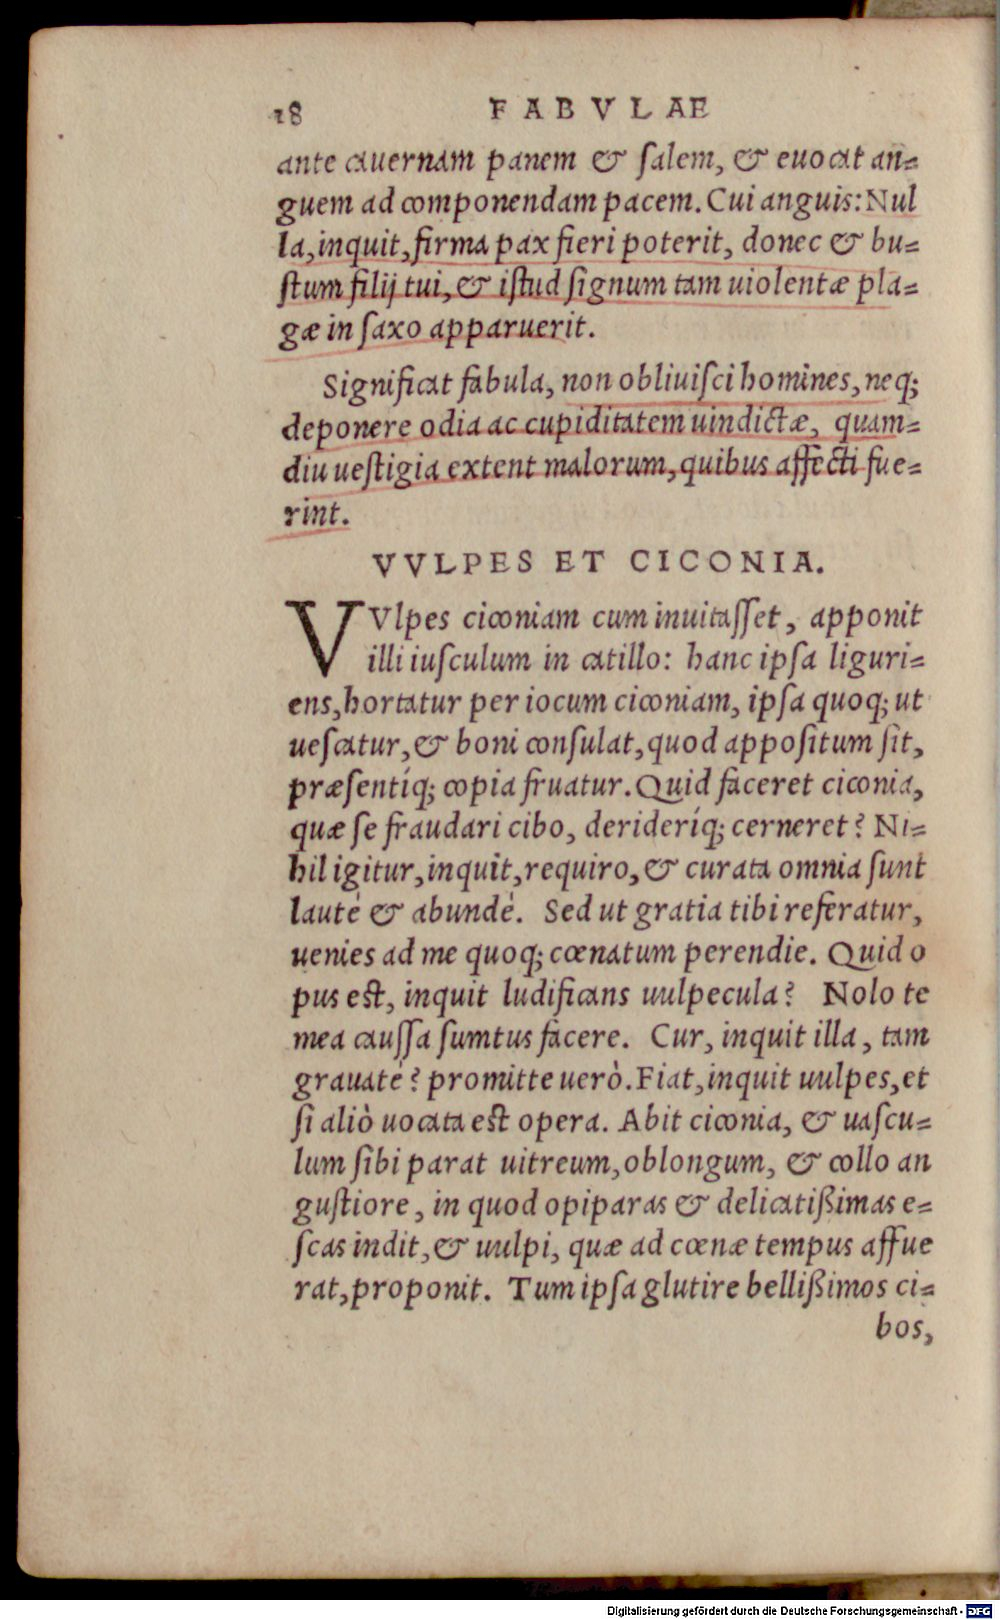 18 FABVLAE
ante cauernam panem & ſalem, & euocat an=
guem ad componendam pacem. Cui anguis: Nul
la, inquit, firma pax fieri poterit, donec & bu=
ſtum filij tui, & iſtud ſignum tam uiolentæ pla=
gæ in ſaxo apparuerit.
Significat fabula, non obliuiſci homines, neq;
deponere odia ac cupiditatem uindictæ, quam=
diu ueſtigia extent malorum, quibus affecti fue=
rint.
VVLPES ET CICONIA.
VVlpes ciconiam cum inuitaſſet, apponit
illi iuſculum in catillo: hanc ipſa liguri=
ens, hortatur per iocum ciconiam, ipſa quoq; ut
ueſcatur, & boni conſulat, quod appoſitum ſit,
præſentíq; copia fruatur. Quid faceret ciconia,
quæ ſe fraudari cibo, derideríq; cerneret? Ni=
hil igitur, inquit, requiro, & curata omnia ſunt
lautè & abundè. Sed ut gratia tibi referatur,
uenies ad me quoq; cœnatum perendie. Quid o
pus est, inquit ludificans uulpecula? Nolo te
mea cauſſa ſumtus facere. Cur, inquit illa, tam
grauatè? promitte uerò. Fiat, inquit uulpes, et
ſi aliò uocata est opera. Abit ciconia, & uaſcu=
lum ſibi parat uitreum, oblongum, & collo an
guſtiore, in quod opiparas & delicatißimas e=
ſcas indit, & uulpi, quæ ad cœnæ tempus affue
rat, proponit. Tum ipſa glutire bellißimos ci=
bos,
Digitalisierung gefördert durch die Deutsche Forschungsgemeinschaft - DFG